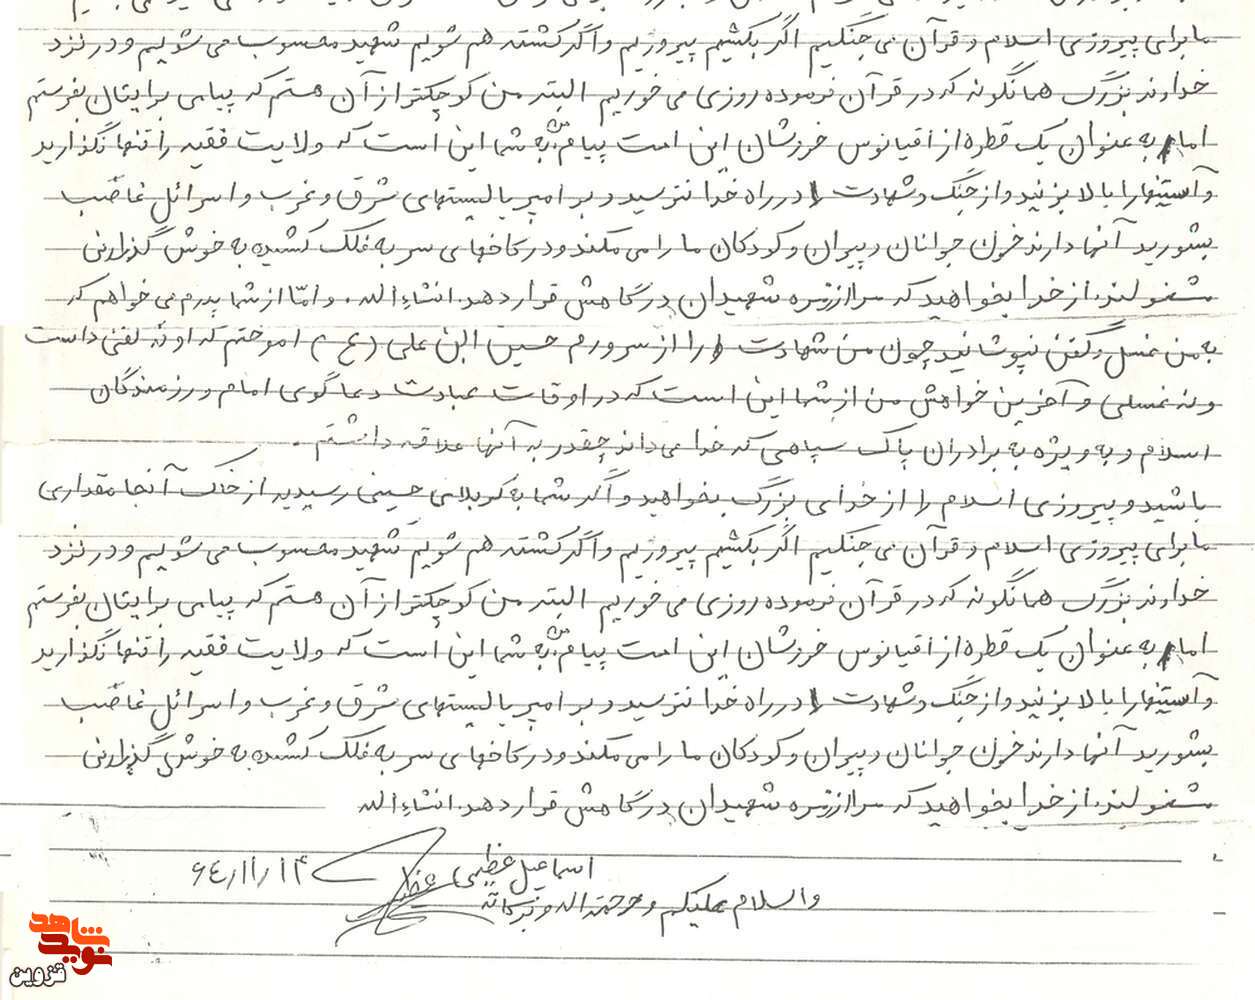 ما برای پیروزی اسلام و قرآن می جنگیم اگر بکشیم پیروزیم و اگر کشته هم شویم شهید محسوب می شویم و در نزد
خداوند بزرگ همانگونه که در قرآن فرموده روزی می خوریم البته من کوچکتر از آن هستم که پیامی برایتان بفرستم
اما به عنوان یک قطره از اقیانوس خروشان این امت پیام من به شما این است که ولایت فقیه را تنها نگذارید
و آستینها را بالا بزنید و از جنگ و شهادت در راه خدا نترسید و بر امپریالیستهای شرق و غرب و اسرائیل غاصب
بشورید آنها دارند خون جوانان و پیران و کودکان ما را می مکند و در کاخهای سر به فلک کشیده به خوش گذرانی
مشغولند. از خدا بخواهید که مرا از زمره شهیدان درگاهش قرار دهد. انشاءالله. و امّا از شما پدرم می خواهم که
به من غسل و کفن نپوشانید چون من شهادت را از سرورم حسین ابن علی (ع) اموختم که او نه کفنی داشت
و نه غسلی و آخرین خواهش من از شما این است که در اوقات عبادت دعاگوی امام و رزمندگان
اسلام و به ویژه به برادران پاک سپاهی که خدا می داند چقدر به آنها علاقه داشتم .
باشید و پیروزی اسلام را از خدای بزرگ بخواهید و اگر شما به کربلای حسینی رسیدید از خاک آنجا مقداری
ما برای پیروزی اسلام و قرآن می جنگیم اگر بکشیم پیروزیم و اگر کشته هم شویم شهید محسوب می شویم و در نزد
خداوند بزرگ همانگونه که در قرآن فرموده روزی می خوریم البته من کوچکتر از آن هستم که پیامی برایتان بفرستم
اما به عنوان یک قطره از اقیانوس خروشان این امت پیام من به شما این است که ولایت فقیه را تنها نگذارید
و آستینها را بالا بزنید و از جنگ و شهادت در راه خدا نترسید و بر امپریالیستهای شرق و غرب و اسرائیل غاصب
بشورید آنها دارند خون جوانان و پیران و کودکان ما را می مکند و در کاخهای سر به فلک کشیده به خوش گذرانی
مشغولند. از خدا بخواهید که مرا از زمره شهیدان درگاهش قرار دهد. انشاءالله
اسماعیل عظیمی ۶۴/۱۱/۱۴
والسلام علیکم و رحمته اله و برکاته
نوید شاهد
قزوین